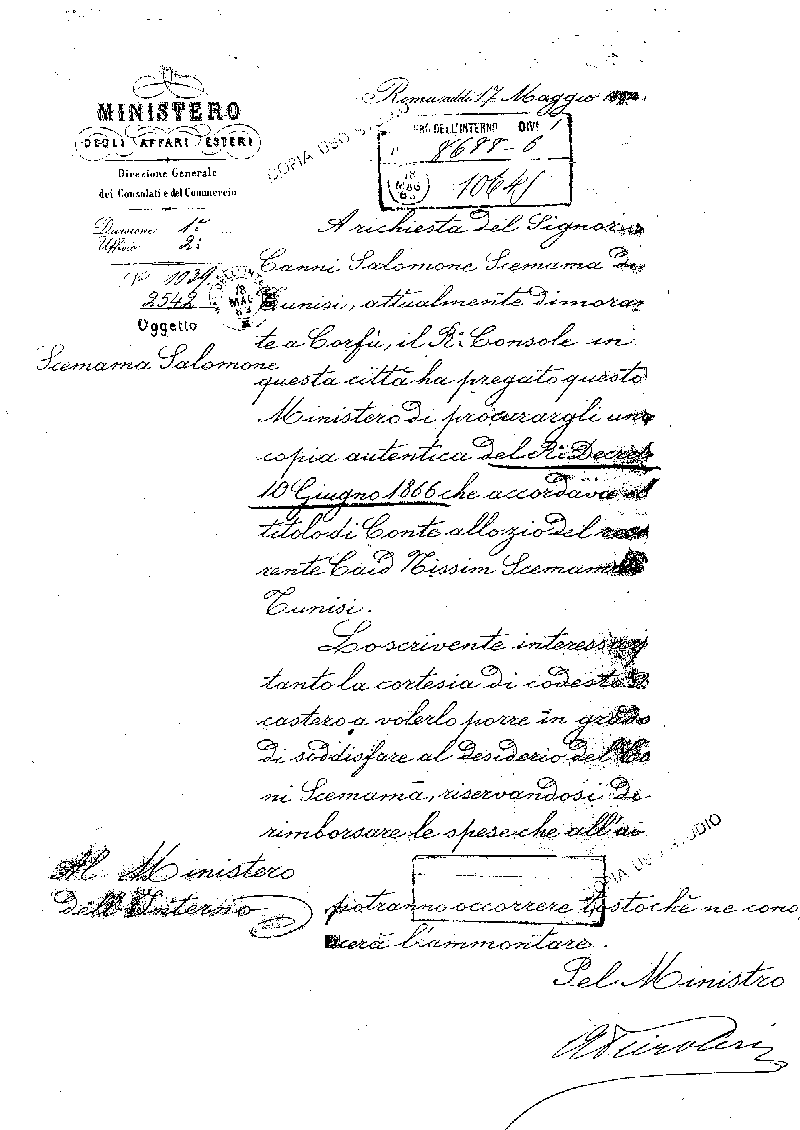 MINISTERO
DEGLI AFFARI ESTERI
Direzione Generale
dei Consolati e del Commercio
Divisione 1ª
Ufficio 2º
Nº 1029
2542
Oggetto
Scemama Salomone
Roma addì 17 Maggio
COPIA USO STUDIO
DELL'INTERNO DIV. 1
8688-6
18
MAG
83
10645
18
MAG
83
A richiesta del Signor
Canni Salomone Scemama di
Tunisi, attualmente dimoran
te a Corfù, il Rº Console in
questa città ha pregato questo
Ministero di procurargli una
copia autentica del Rº Decreto
10 Giugno 1866 che accordava il
titolo di Conte allo zio del ricor
rente Caid Nissim Scemama
Tunisi.
Lo scrivente interessa
tanto la cortesia di codesto
castero a volerlo porre in grado
di soddisfare al desiderio del
ni Scemama, riservandosi di
rimborsare le spese che all'uo
potranno occorrere tostochè ne conos
cerà l'ammontare.
Al Ministero
dell'Interno
COPIA USO STUDIO
Pel Ministro